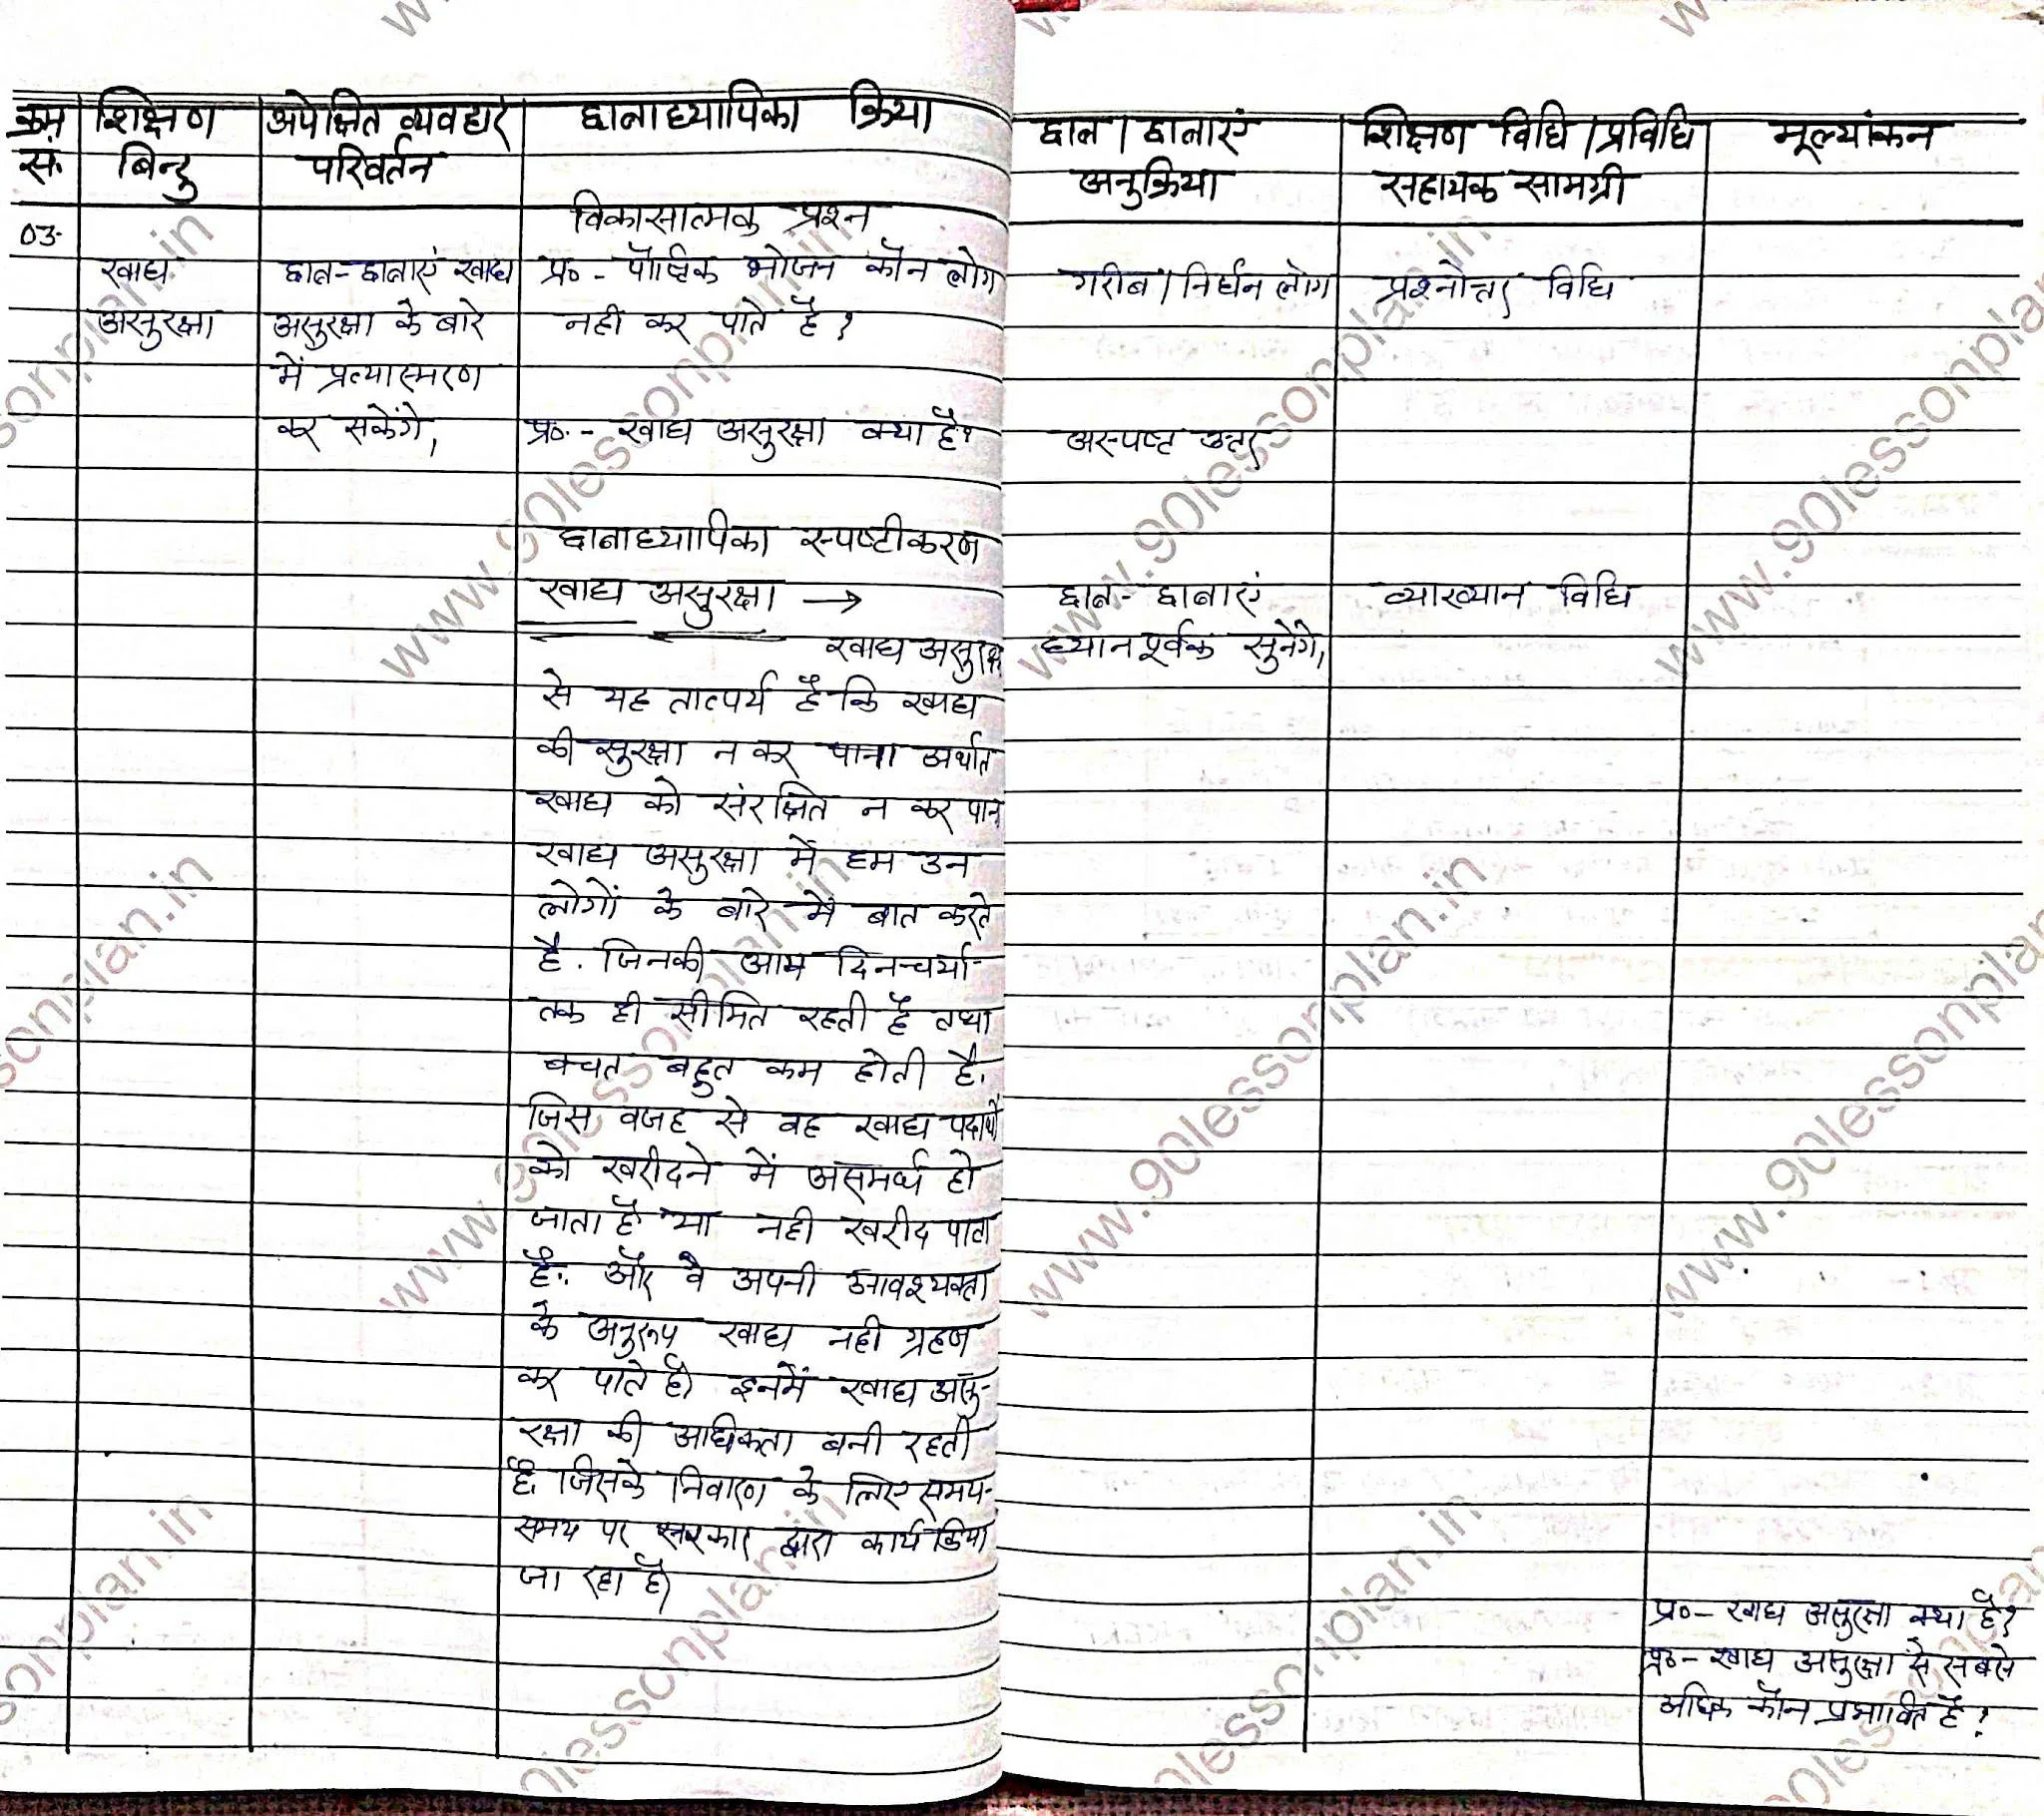 क्रम सं.
शिक्षण बिन्दु
अपेक्षित व्यवहार परिवर्तन
छात्राध्यापिका क्रिया
03.
खाद्य
असुरक्षा
छात्र-छात्राएं खाद्य
असुरक्षा के बारे
में प्रत्यास्मरण
कर सकेंगे,
विकासात्मक प्रश्न
प्र० - पौष्टिक भोजन कौन लोग
नही कर पाते है?
प्र०.- खाद्य असुरक्षा क्या है?
छात्राध्यापिका स्पष्टीकरण
खाद्य असुरक्षा →
खाद्य असुरक्षा
से यह तात्पर्य है कि खाद्य
की सुरक्षा न कर पाना अर्थात
खाद्य को संरक्षित न कर पाना
खाद्य असुरक्षा में हम उन
लोगों के बारे में बात करते
है. जिनकी आम दिनचर्या
तक ही सीमित रहती है तथा
बचत बहुत कम होती है.
जिस वजह से वह खाद्य पदार्थों
को खरीदने में असमर्थ हो
जाता है या नही खरीद पाता
है. और वे अपनी आवश्यक्ता
के अनुरूप खाद्य नही ग्रहण
कर पाते है। इनमें खाद्य असु-
रक्षा की अधिकता बनी रहती
है जिसके निवारण के लिए समय-
समय पर सरकार द्वारा कार्य किया
जा रहा है।
छात्र / छात्राएं
अनुक्रिया
शिक्षण विधि / प्रविधि
सहायक सामग्री
मूल्यांकन
गरीब / निर्धन लोग
प्रश्नोत्तर विधि
अस्पष्ट उत्तर
छात्र- छात्राएं
ध्यानपूर्वक सुनेंगे,
व्याख्यान विधि
प्र०- खाद्य असुरक्षा क्या है?
प्र०- खाद्य असुरक्षा से सबसे
अधिक कौन प्रभावित है?
www.90lessonplan.in